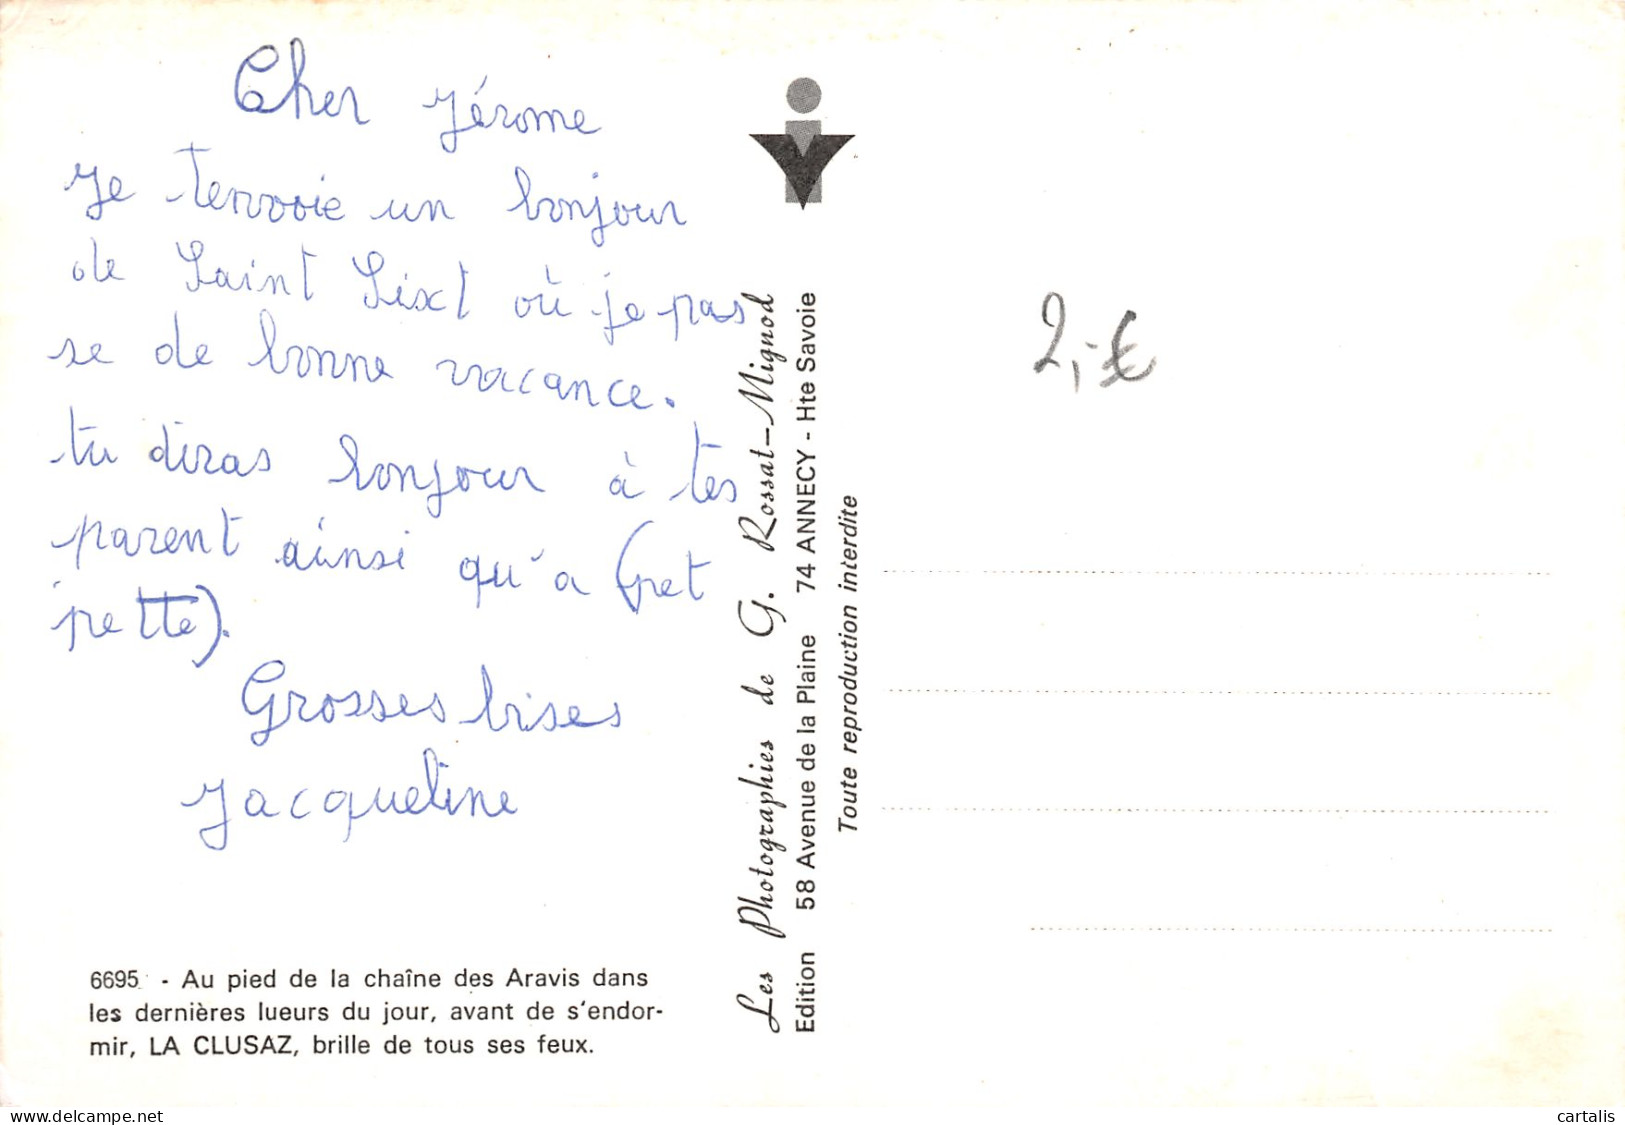 Cher Jérome
Je tenvoie un bonjour
de Saint Sixt où je pas
se de bonne vacance.
tu diras bonjour à tes
parent ainsi qu'a (pet
pette).
Grosses bises
Jacqueline
6695 - Au pied de la chaîne des Aravis dans
les dernières lueurs du jour, avant de s'endor-
mir, LA CLUSAZ, brille de tous ses feux.
Les Photographies de G. Rossat-Mignod
Edition 58 Avenue de la Plaine 74 ANNECY - Hte Savoie
Toute reproduction interdite
2,-€
delcampe.net
cartalis